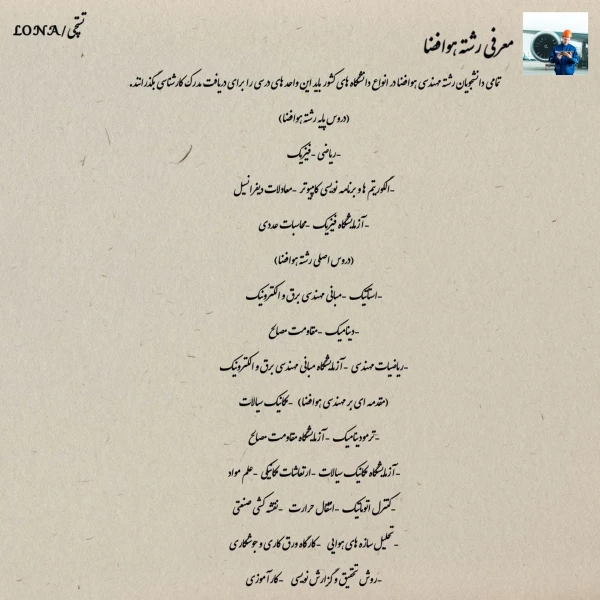 معرفی رشته هوافضا
تستچی/LONA
تمامی دانشجویان رشته مهندسی هوافضا در انواع دانشگاه های کشور باید این واحد های درسی را برای دریافت مدرک کارشناسی بگذرانند.
(دروس پایه رشته هوافضا)
-ریاضی -فیزیک
-الگوریتم ها و برنامه نویسی کامپیوتر -معادلات دیفرانسیل
-آزمایشگاه فیزیک -محاسبات عددی
(دروس اصلی رشته هوافضا)
-استاتیک -مبانی مهندسی برق و الکترونیک
-دینامیک -مقاومت مصالح
-ریاضیات مهندسی -آزمایشگاه مبانی مهندسی برق و الکترونیک
(مقدمه ای بر مهندسی هوافضا) -مکانیک سیالات
-ترمودینامیک -آزمایشگاه مقاومت مصالح
-آزمایشگاه مکانیک سیالات -ارتعاشات مکانیکی -علم مواد
-کنترل اتوماتیک -انتقال حرارت -نقشه کشی صنعتی
-تحلیل سازه های هوایی -کارگاه ورق کاری و جوشکاری
-روش تحقیق و گزارش نویسی -کارآموزی